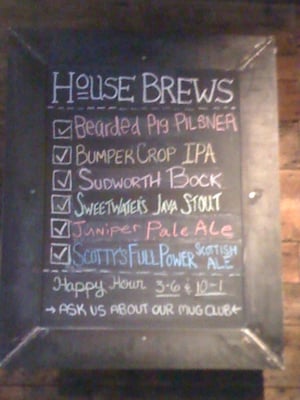 HOUSE BREWS
Bearded Pig PILSNER
BUMPER CROP IPA
SUDWORTH BOCK
SWEETWATER'S JAVA STOUT
Juniper Pale Ale
SCOTTY'S FULL POWER SCOTTISH ALE
Happy Hour 3-6 & 10-1
→ ASK US ABOUT OUR MUG CLUB ←